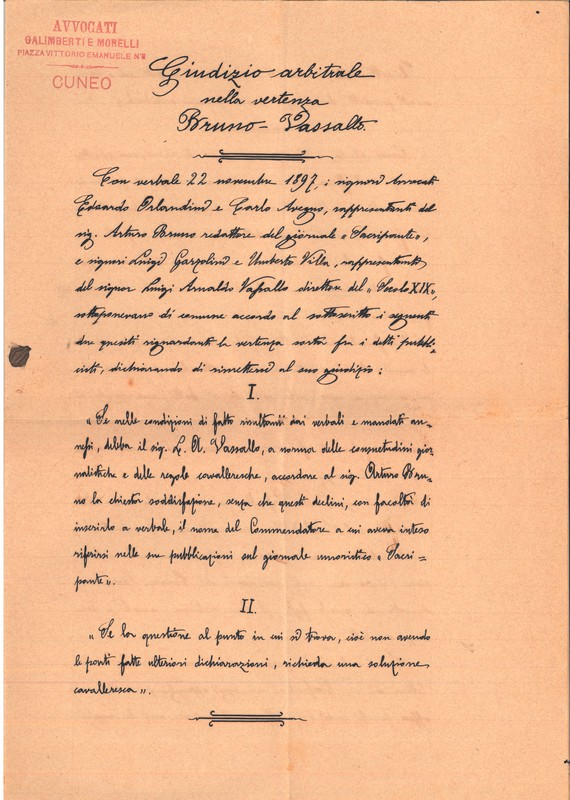 AVVOCATI
GALIMBERTI E MORELLI
PIAZZA VITTORIO EMANUELE N°8
CUNEO
Giudizio arbitrale
nella vertenza
Bruno - Vassallo.
Con verbale 22 novembre 1897, i signori Avvocati
Edoardo Orlandini e Carlo Avegno, rappresentanti del
sig. Arturo Bruno redattore del giornale « Sacripante »,
e signori Luigi Garzolini e Umberto Villa, rappresentanti
del signor Luigi Arnaldo Vassallo direttore del « Secolo XIX »,
sottoponevano di comune accordo al sottoscritto i seguenti
due quesiti riguardanti la vertenza sorta fra i detti pubbli-
cisti, dichiarando di rimettersi al suo giudizio :
I.
« Se nelle condizioni di fatto risultanti dai verbali e mandati an-
nessi, debba il sig. L. A. Vassallo, a norma delle consuetudini gior-
nalistiche e delle regole cavalleresche, accordare al sig. Arturo Bru-
no la chiesta soddisfazione, senza che questi declini, con facoltà di
inserirlo a verbale, il nome del Commendatore a cui aveva inteso
riferirsi nelle sue pubblicazioni sul giornale umoristico « Sacri-
pante ».
II.
« Se la questione al punto in cui si trova, cioè non avendo
le parti fatte ulteriori dichiarazioni, richieda una soluzione
cavalleresca ».